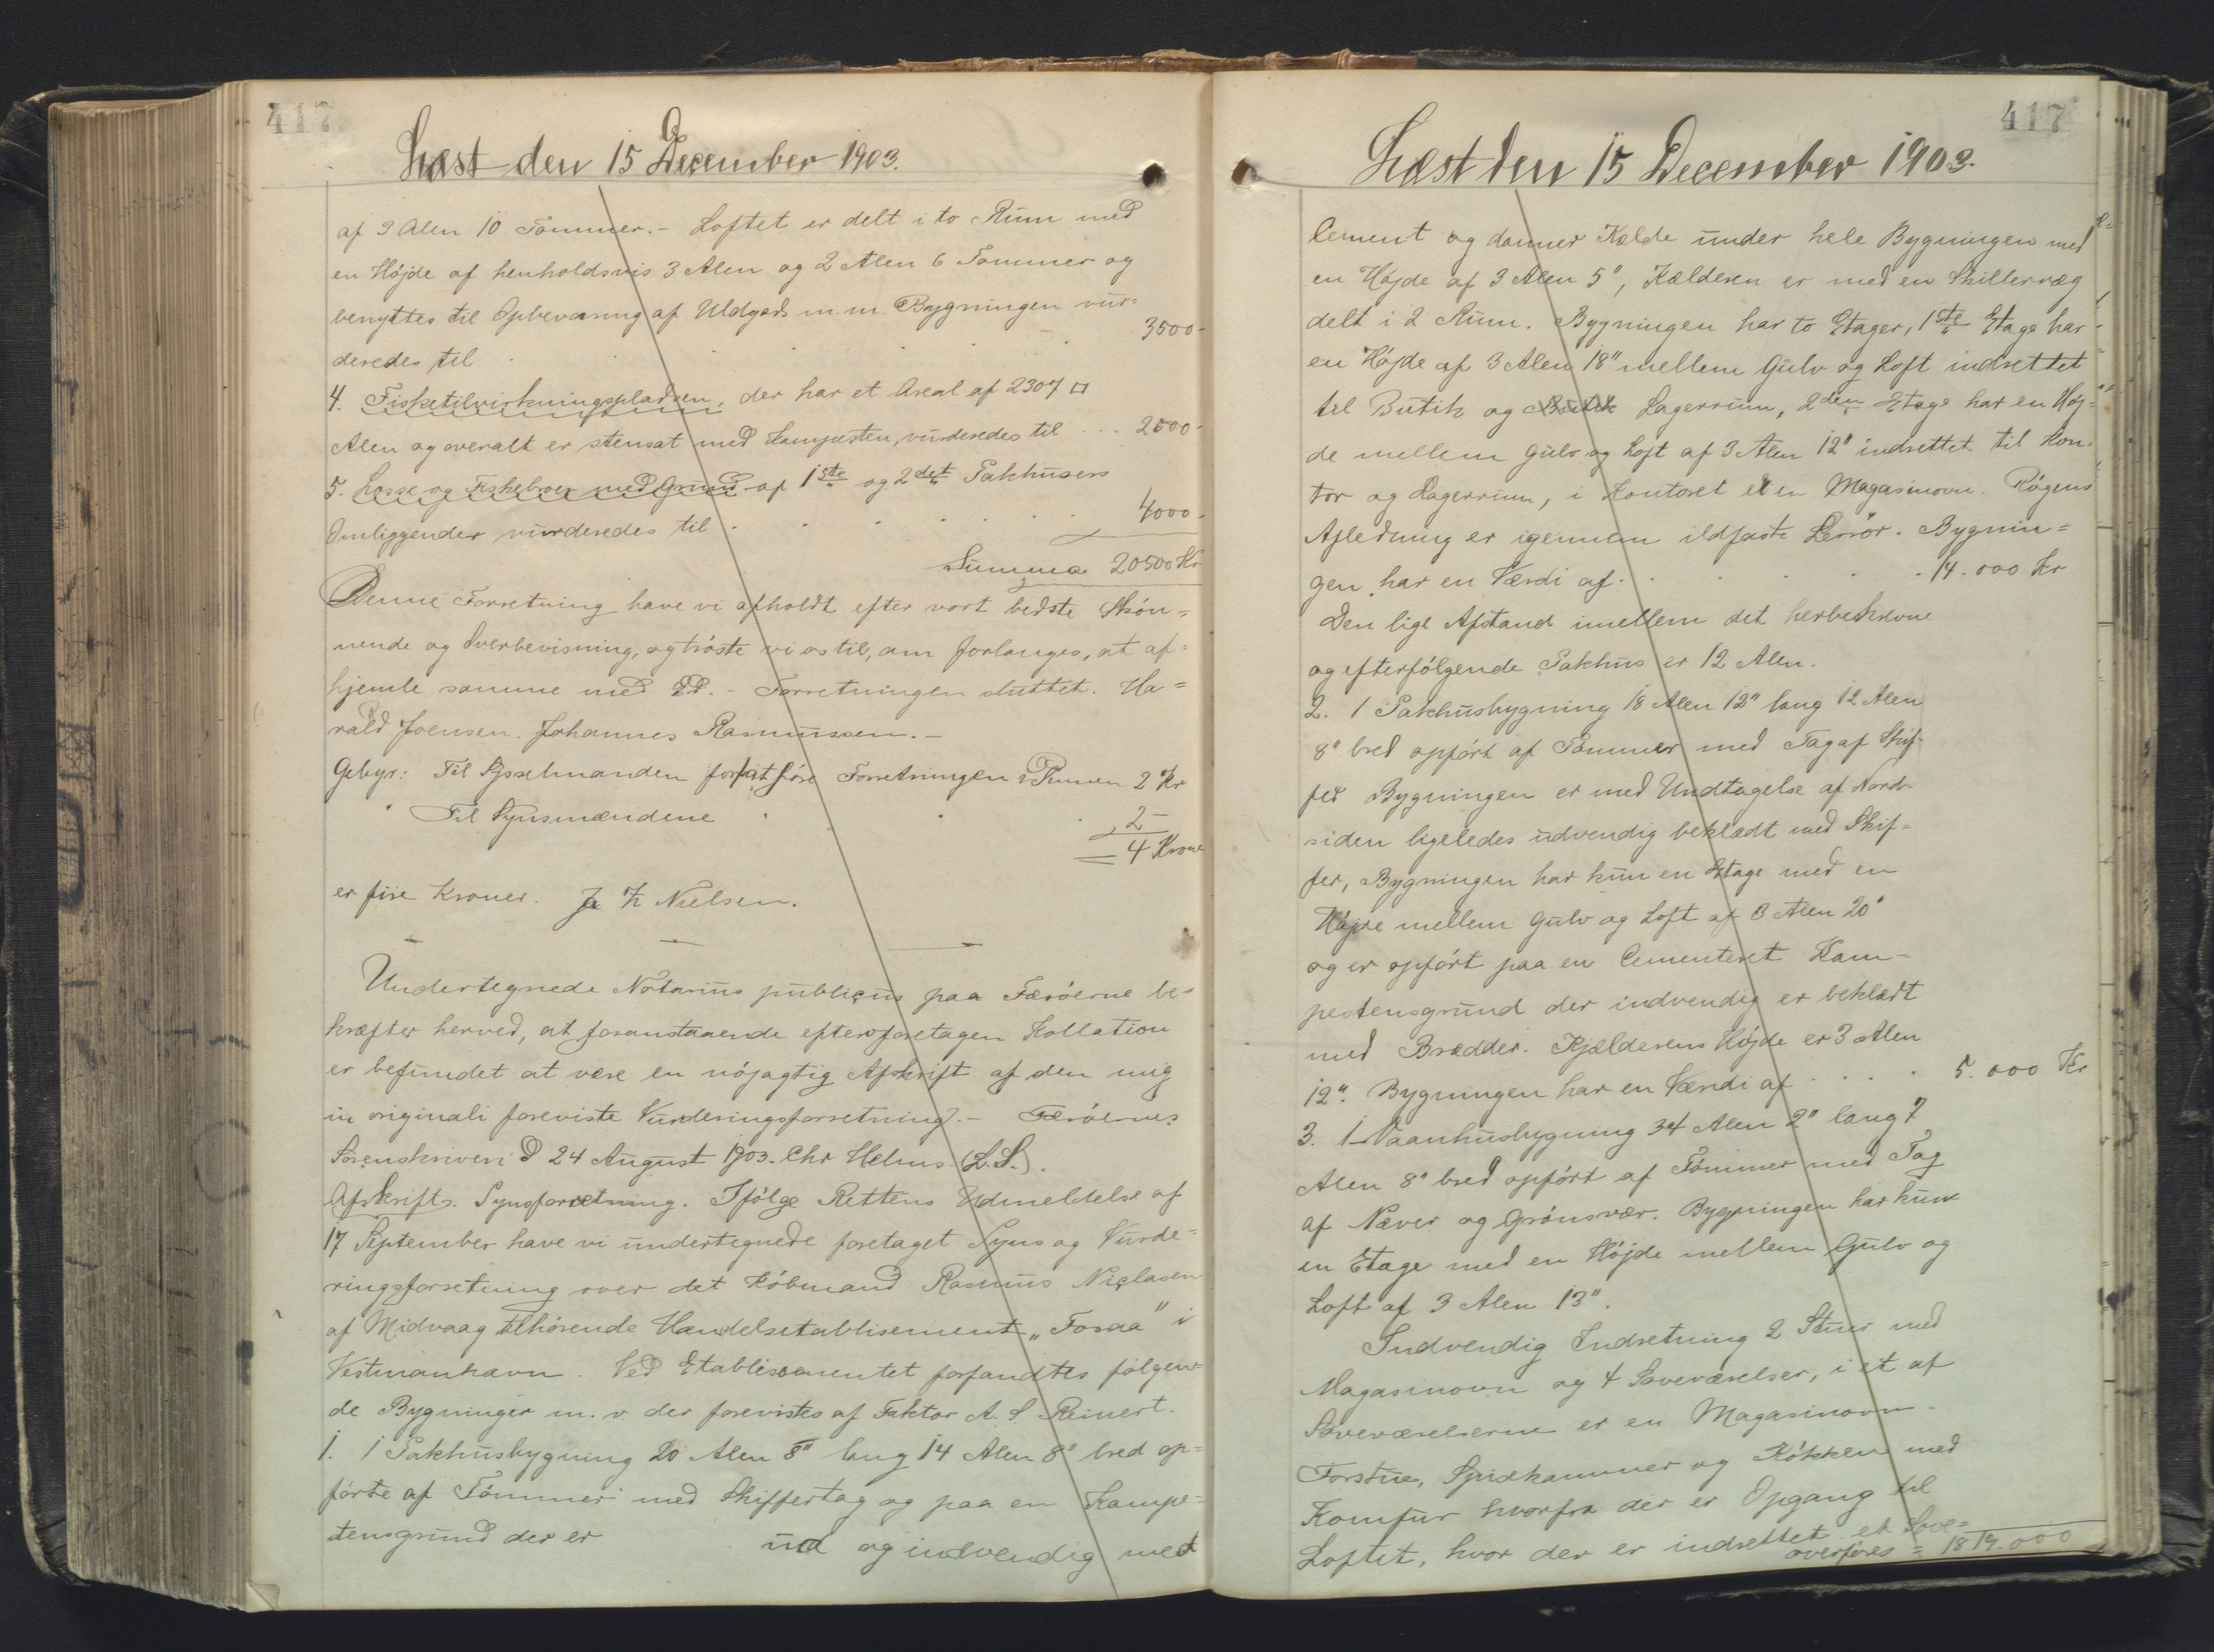 417
Læst den 15 December 1903.
af 3 Alen 10 Tommer. - Loftet er delt i to Rum med
en Højde af henholdsvis 3 Alen og 2 Alen 6 Tommer og
benyttes til Opbevaring af Uldgods m.m. Bygningen vur=
deredes til . . . . . 3500-
4. Fisketilvirkningspladsen, der har et Areal af 2307 □
Alen og overalt er stensat med Kampesten, vurderedes til ... 2000-
5. Losse og Fiskebroer med Grund af 1ste og 2det Pakhusers
Omliggender vurderedes til . . . . . 4000-
Summa 20500 Kr
Denne Forretning have vi afholdt efter vort bedste Skøn=
nende og Overbevisning, og trøste vi os til, om forlanges, at af=
hjemle samme med Ed. - Forretningen sluttet. Ha=
rald Joensen. Johannes Rasmussen. -
Gebyr: Til Sysselmanden for at føre Forretningen i Pennen 2 Kr
" Til Synsmændene . . . 2 -
= 4 Kroner
er fire Kroner. J Z Nielsen.
Undertegnede Notarius publicus paa Færøerne be=
kræfter herved, at foranstaaende efter foretagen Kollation
er befundet at være en nøjagtig Afskrift af den mig
in originali foreviste Vurderingsforretning. - Færøernes
Sorenskriveri D 24 August 1903. Chr Helms. (L.S.).
Afskrift. Synsforretning. Ifølge Rettens Udmeldelse af
17 September have vi undertegnede foretaget Syns og Vurde=
ringsforretning over det Købmand Rasmus Niclasen
af Midvaag tilhørende Handelsetablisement "Fosaa" i
Vestmanhavn. Ved Etablissementet forfandtes følgen=
de Bygninger m. v. der forevistes af Faktor A. S. Reinert.
1. 1 Pakhusbygning 20 Alen 8" lang 14 Alen 8" bred op=
førte af Tømmer med Skiffertag og paa en Kampe=
tensgrund der er ud og indvendig med
417
Læst den 15 December 1903.
Cement og danner Kælde under hele Bygningen med
en Højde af 3 Alen 5", Kælderen er med en Skillevæg
delt i 2 Rum. Bygningen har to Etager, 1ste Etage har
en Højde af 3 Alen 18" mellem Gulv og Loft indrettet
til Butik og Butik Lagerrum, 2den Etage har en Høj=
de mellem Gulv og Loft af 3 Alen 12" indrettet til Kon=
tor og Lagerrum, i Kontoret er en Magasinovn. Røgens
Afledning er igennem ildfaste Lerrør. Bygnin=
gen har en Værdi af . . . . . 14.000 Kr
Den lige Afstand imellem det herbeskrevne
og efterfølgende Pakhus er 12 Alen.
2. 1 Pakhusbygning 18 Alen 12" lang 12 Alen
8" bred opført af Tømmer med Tag af Skif-
fer Bygningen er med Undtagelse af Nord-
siden ligeledes udvendig beklædt med Skif=
fer, Bygningen har kun en Etage med en
Højde mellem Gulv og Loft af 3 Alen 20"
og er opført paa en Cementeret Kam=
pestensgrund der indvendig er beklædt
med Brædder. Kjælderens Højde er 3 Alen
12". Bygningen har en Værdi af . . . . 5.000 Kr
3. 1 Vaanhusbygning 34 Alen 2" lang 7
Alen 8" bred opført af Tømmer med Tag
af Næver og Grønsvær. Bygningen har kun
en Etage med en Højde mellem Gulv og
Loft af 3 Alen 13".
Indvendig Indretning 2 Stuer med
Magasinovn og 4 Soveværelser, i et af
Soveværelserne er en Magasinovn.
Forstue, Spisekammer og Køkken med
Komfur hvorfra der er Opgang til
Loftet, hvor der er indrettet et Sove=
overføres = 19.000